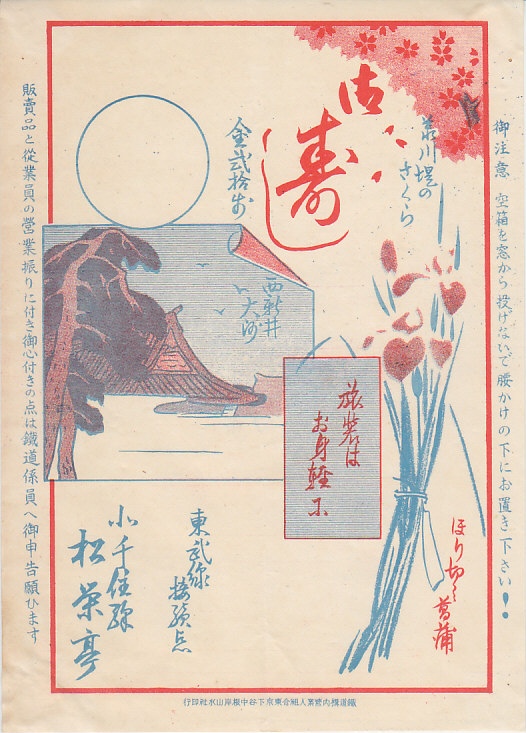 御注意 空箱を窓から投げないで腰かけの下にお置き下さい!
荒川堤の
さくら
御寿し
金弐拾銭
西新井
大師
旅装は
お身軽に
ほり切 菖蒲
東武線
接続点
北千住駅
松栄亭
販賣品と從業員の營業振りに付き御心付きの点は鐵道係員へ御申告願ひます
鐵道構内営業人組合東京下谷中根岸山水社印行